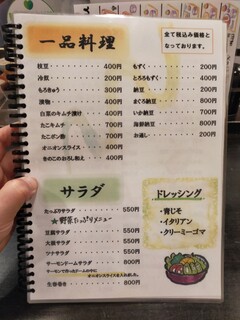 一品料理
全て税込み価格と
なっております。
枝豆・・・・・・・・400円
冷気・・・・・・・・200円
もろきゅう・・・・・300円
漬物・・・・・・・・400円
白菜のキムチ漬け・・400円
たこキムチ・・・・・700円
たこポン酢・・・・・700円
オニオンスライス・・400円
きのこのおろし和え・400円
もずく・・・・・・200円
とろろもずく・・・400円
納豆・・・・・・・200円
まぐろ納豆・・・・800円
いか納豆・・・・・700円
海鮮納豆・・・・・800円
お通し・・・・・・200円
サラダ
たっぷりサラダ・・・・550円
☆野菜たっぷりメニュー
豆腐サラダ・・・・・・550円
大根サラダ・・・・・・550円
ツナサラダ・・・・・・550円
サーモンドームサラダ・・800円
サーモンで作ったドームの中に
オニオンスライスを入れました。
生春巻き・・・・・・・800円
ドレッシング
・青じそ
・イタリアン
・クリーミーゴマ